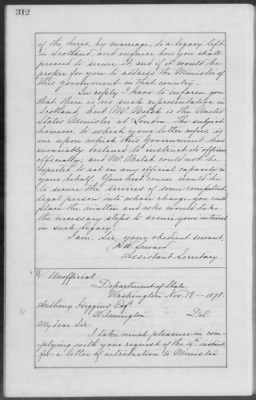 312
of the heirs, by marriage, to a legacy left
in Scotland, and enquire how you shall
proceed to secure it, and if it would be
proper for you to address the Minister of
this government in that country.
In reply I have to inform you
that there is no such representative in
Scotland, but Mr. Welsh is the United
States Minister at London. The subject
however to which your letter refers is
one upon which this Government has
invariably declined to instruct its officers
officially, and Mr. Welsh could not be
expected to act in any official capacity in
your behalf. Your best course would be
to secure the services of some competent
legal person in whose charge you could
place the matter and who would take
the necessary steps to secure your interest
in such legacy.
I am, Sir, your obedient servant,
F. W. Seward
Assistant Secretary.
Unofficial
Department of State,
Washington Nov. 19 1878.
Anthony Higgins Esqr.
Wilmington Del.
My dear Sir:
I take much pleasure in com-
plying with your request of the 16th instant
for a letter of introduction to Minister